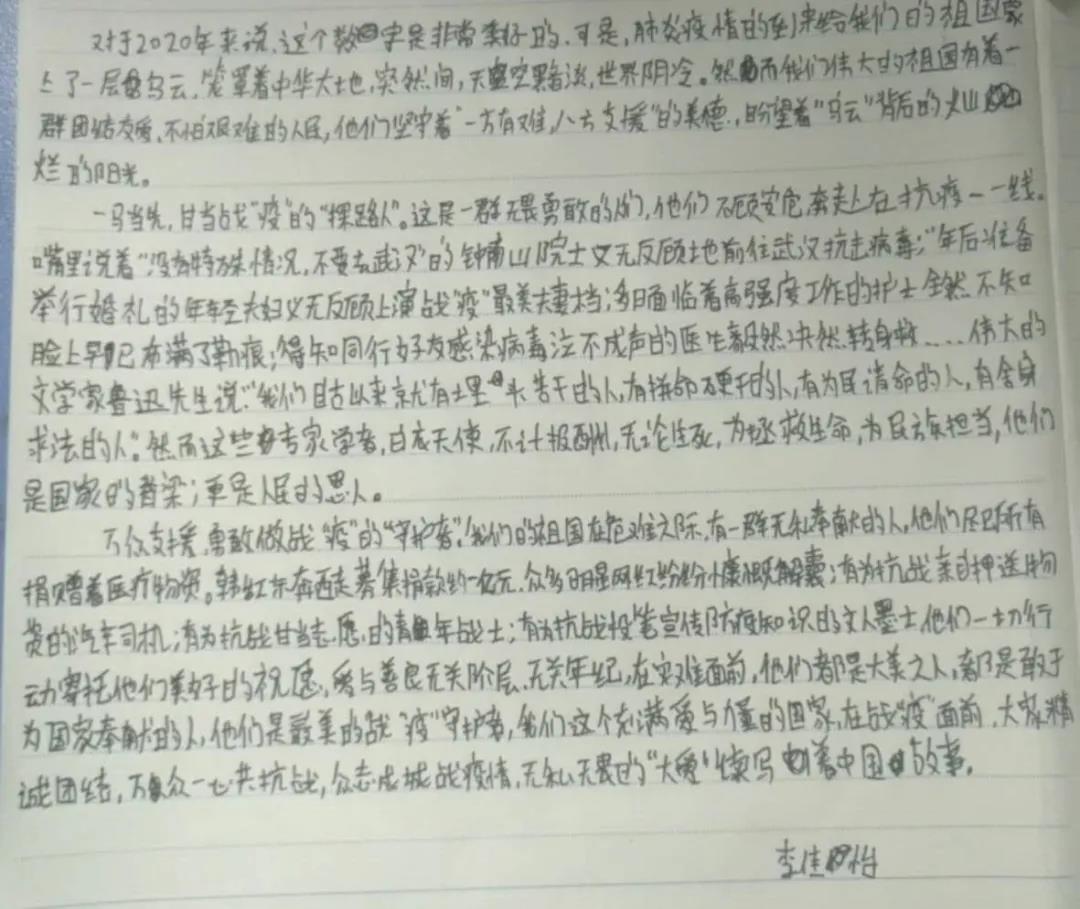 对于2020年来说,这个数字是非常美好的.可是,肺炎疫情的到来给我们的祖国蒙
上了一层乌云.笼罩着中华大地,突然间,天空黯淡,世界阴冷。然而我们伟大的祖国有着一
群团结友爱,不怕艰难的人民,他们坚守着“一方有难,八方支援”的美德,盼望着“乌云”背后的火山
烂的阳光。
一马当先,甘当战“疫”的“探路人”。这是一群无畏勇敢的人们,他们不顾安危奔走在抗疫一一线。
嘴里说着“没有特殊情况,不要去武汉”的钟南山院士义无反顾地前往武汉抗击病毒;年后准备
举行婚礼的年轻夫妇义无反顾上演战“疫”最美夫妻档;多日面临着高强度工作的护士全然不知
脸上早已布满了勒痕;得知同行好友感染病毒泣不成声的医生毅然决然转身救……伟大的
文学家鲁迅先生说:“我们自古以来就有埋头苦干的人,有拼命硬干的人,有为民请命的人,有舍身
求法的人。”然而这些专家学者,白衣天使,不计报酬,无论生死,为拯救生命,为民族担当,他们
是国家的脊梁;更是人民的恩人。
万众支援,勇敢做战“疫”的“守护者”.我们的祖国在危难之际,有一群无私奉献的人,他们尽己所有
捐赠着医疗物资。韩红东奔西走募集捐款约一亿元.众多明星网红纷纷慷慨解囊;有为抗战亲自押送物
资的汽车司机;有为抗战甘当志愿的青年战士;有为抗战投笔宣传防疫知识的文人墨士他们一切行
动寄托他们美好的祝愿,爱与善良无关阶层.无关年纪,在灾难面前,他们都是大美之人,都是敢于
为国家奉献的人,他们是最美的战“疫”守护者,我们这个充满爱与力量的国家,在战“疫”面前.大家精
诚团结,万众一心共抗战,众志成城战疫情,无私无畏的“大爱”续写着中国故事.
李佳怡